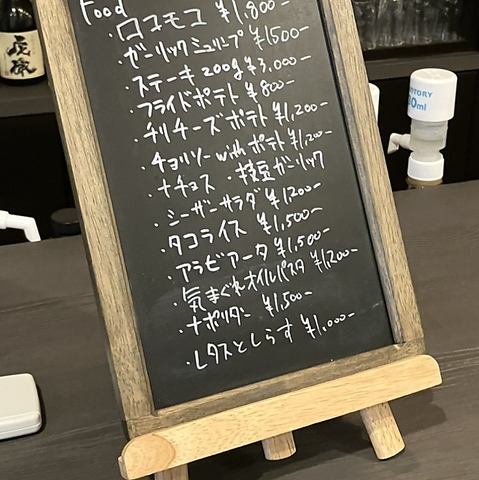 Food
・ロコモコ ¥1,800-
・ガーリックシュリンプ ¥1500-
・ステーキ 200g ¥3,000-
・フライドポテト ¥800-
・チリチーズポテト ¥1,200-
・チョリソー with ポテト ¥1,200-
・ナチョス ・枝豆ガーリック
・シーザーサラダ ¥1,200-
・タコライス ¥1,500-
・アラビアータ ¥1,500-
・気まぐれオイルパスタ ¥1,200-
・ナポリタン ¥1,500-
・レタスとしらす ¥1,000-